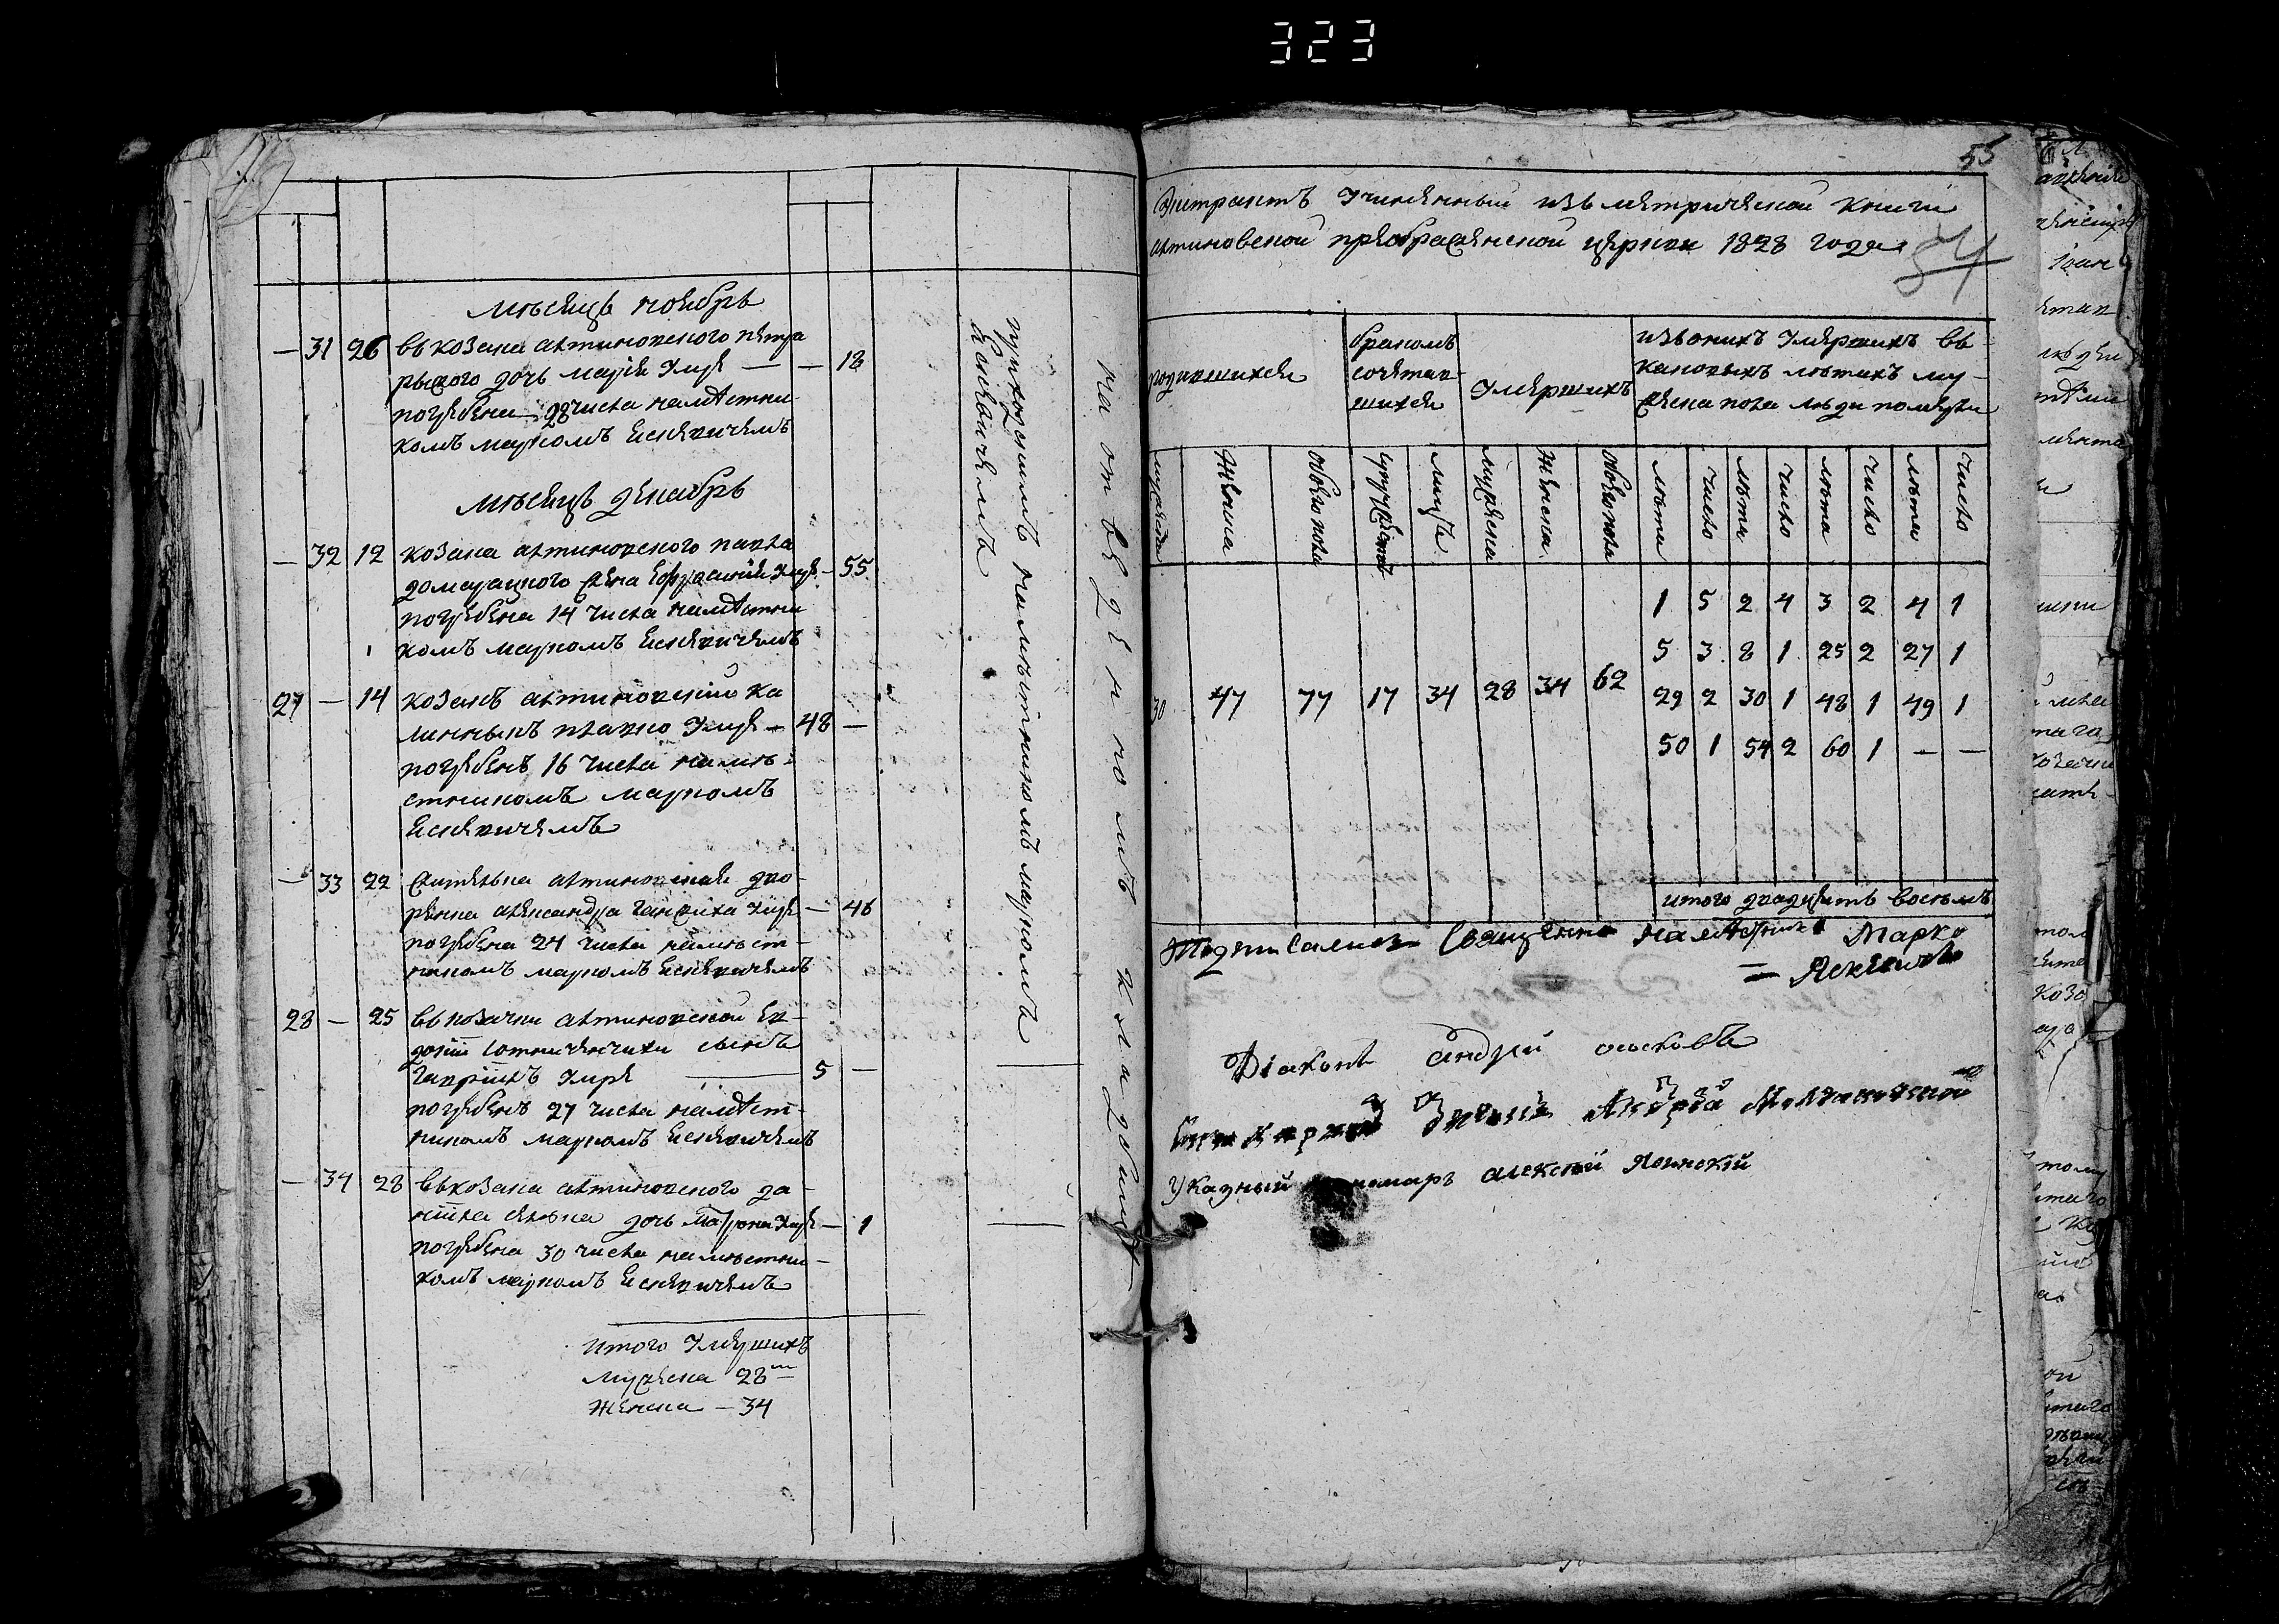 323
мѣсяцъ ноябрь
— 31 26 въ козака алтиновского петра
рыжого дочь марія умре — — 18
погребена 28 числа намѣстни-
комъ маркомъ Ясневичемъ
мѣсяцъ декабрь
— 32 12 козака алтиновского павла
домарацкого жена Ефросинія умре — 55
погребена 14 числа намѣстни
комъ маркомъ Ясневичемъ
27 — 14 козакъ алтиновскій ка
линникъ умре — 48 —
погребенъ 16 числа намѣ-
стникомъ маркомъ
Ясневичемъ
— 33 22 жителька алтиновская дво-
рянка александра умре — 46
погребена 24 числа намѣст-
никомъ маркомъ Ясневичемъ
28 — 25 въ козачки алтиновской Ев-
докіи сынъ
гавріилъ умре — 5 —
погребенъ 27 числа намѣст-
никомъ маркомъ Ясневичемъ
— 34 28 въ козака алтиновского да-
ніила дочь матрона умре — 1
погребена 30 числа намѣстни-
комъ маркомъ Ясневичемъ
итого умершихъ
мужеска 28
женска — 34
приходскимъ намѣстникомъ маркомъ
Ясневичемъ
на отведенномъ кладбищѣ
55
Экстрактъ учиненный изъ метрической книги
алтиновской преображенской церкви 1828 года
54
родившихся
бракомъ
сочетав-
шихся
умершихъ
изъ оныхъ умершихъ въ
каковыхъ лѣтахъ му-
жеска пола люди померли
мужеска женска обоего пола супружествъ лицъ мужеска женска обоего пола лѣта число лѣта число лѣта число лѣта число
1 5 2 4 3 2 4 1
5 3 8 1 25 2 27 1
30 47 77 17 34 28 34 62 29 2 30 1 48 1 49 1
50 1 54 2 60 1 — —
итого двадцять восемь
Подписались Священно намѣстникъ Марко
— Ясневичъ
Діаконъ андрей
Указный пономарь алексѣй Ясинскій